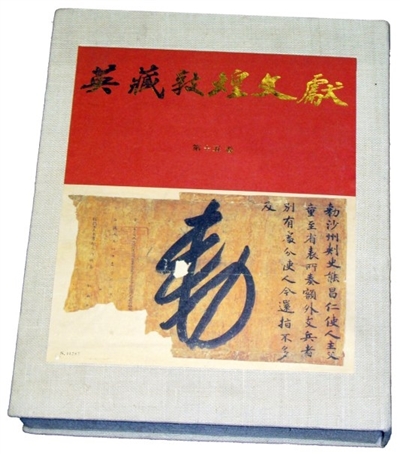 英藏敦煌文獻
勅沙州刺史能昌仁使人主父
童至省表所奏額外支兵者
別有處分使人今還指不多
及
勅